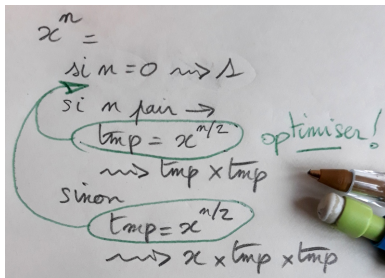 xⁿ =
si n=0 ⟿ 1
si n pair →
tmp = x^(n/2)
optimiser!
⟿ tmp × tmp
sinon
tmp = x^(n/2)
⟿ x × tmp × tmp